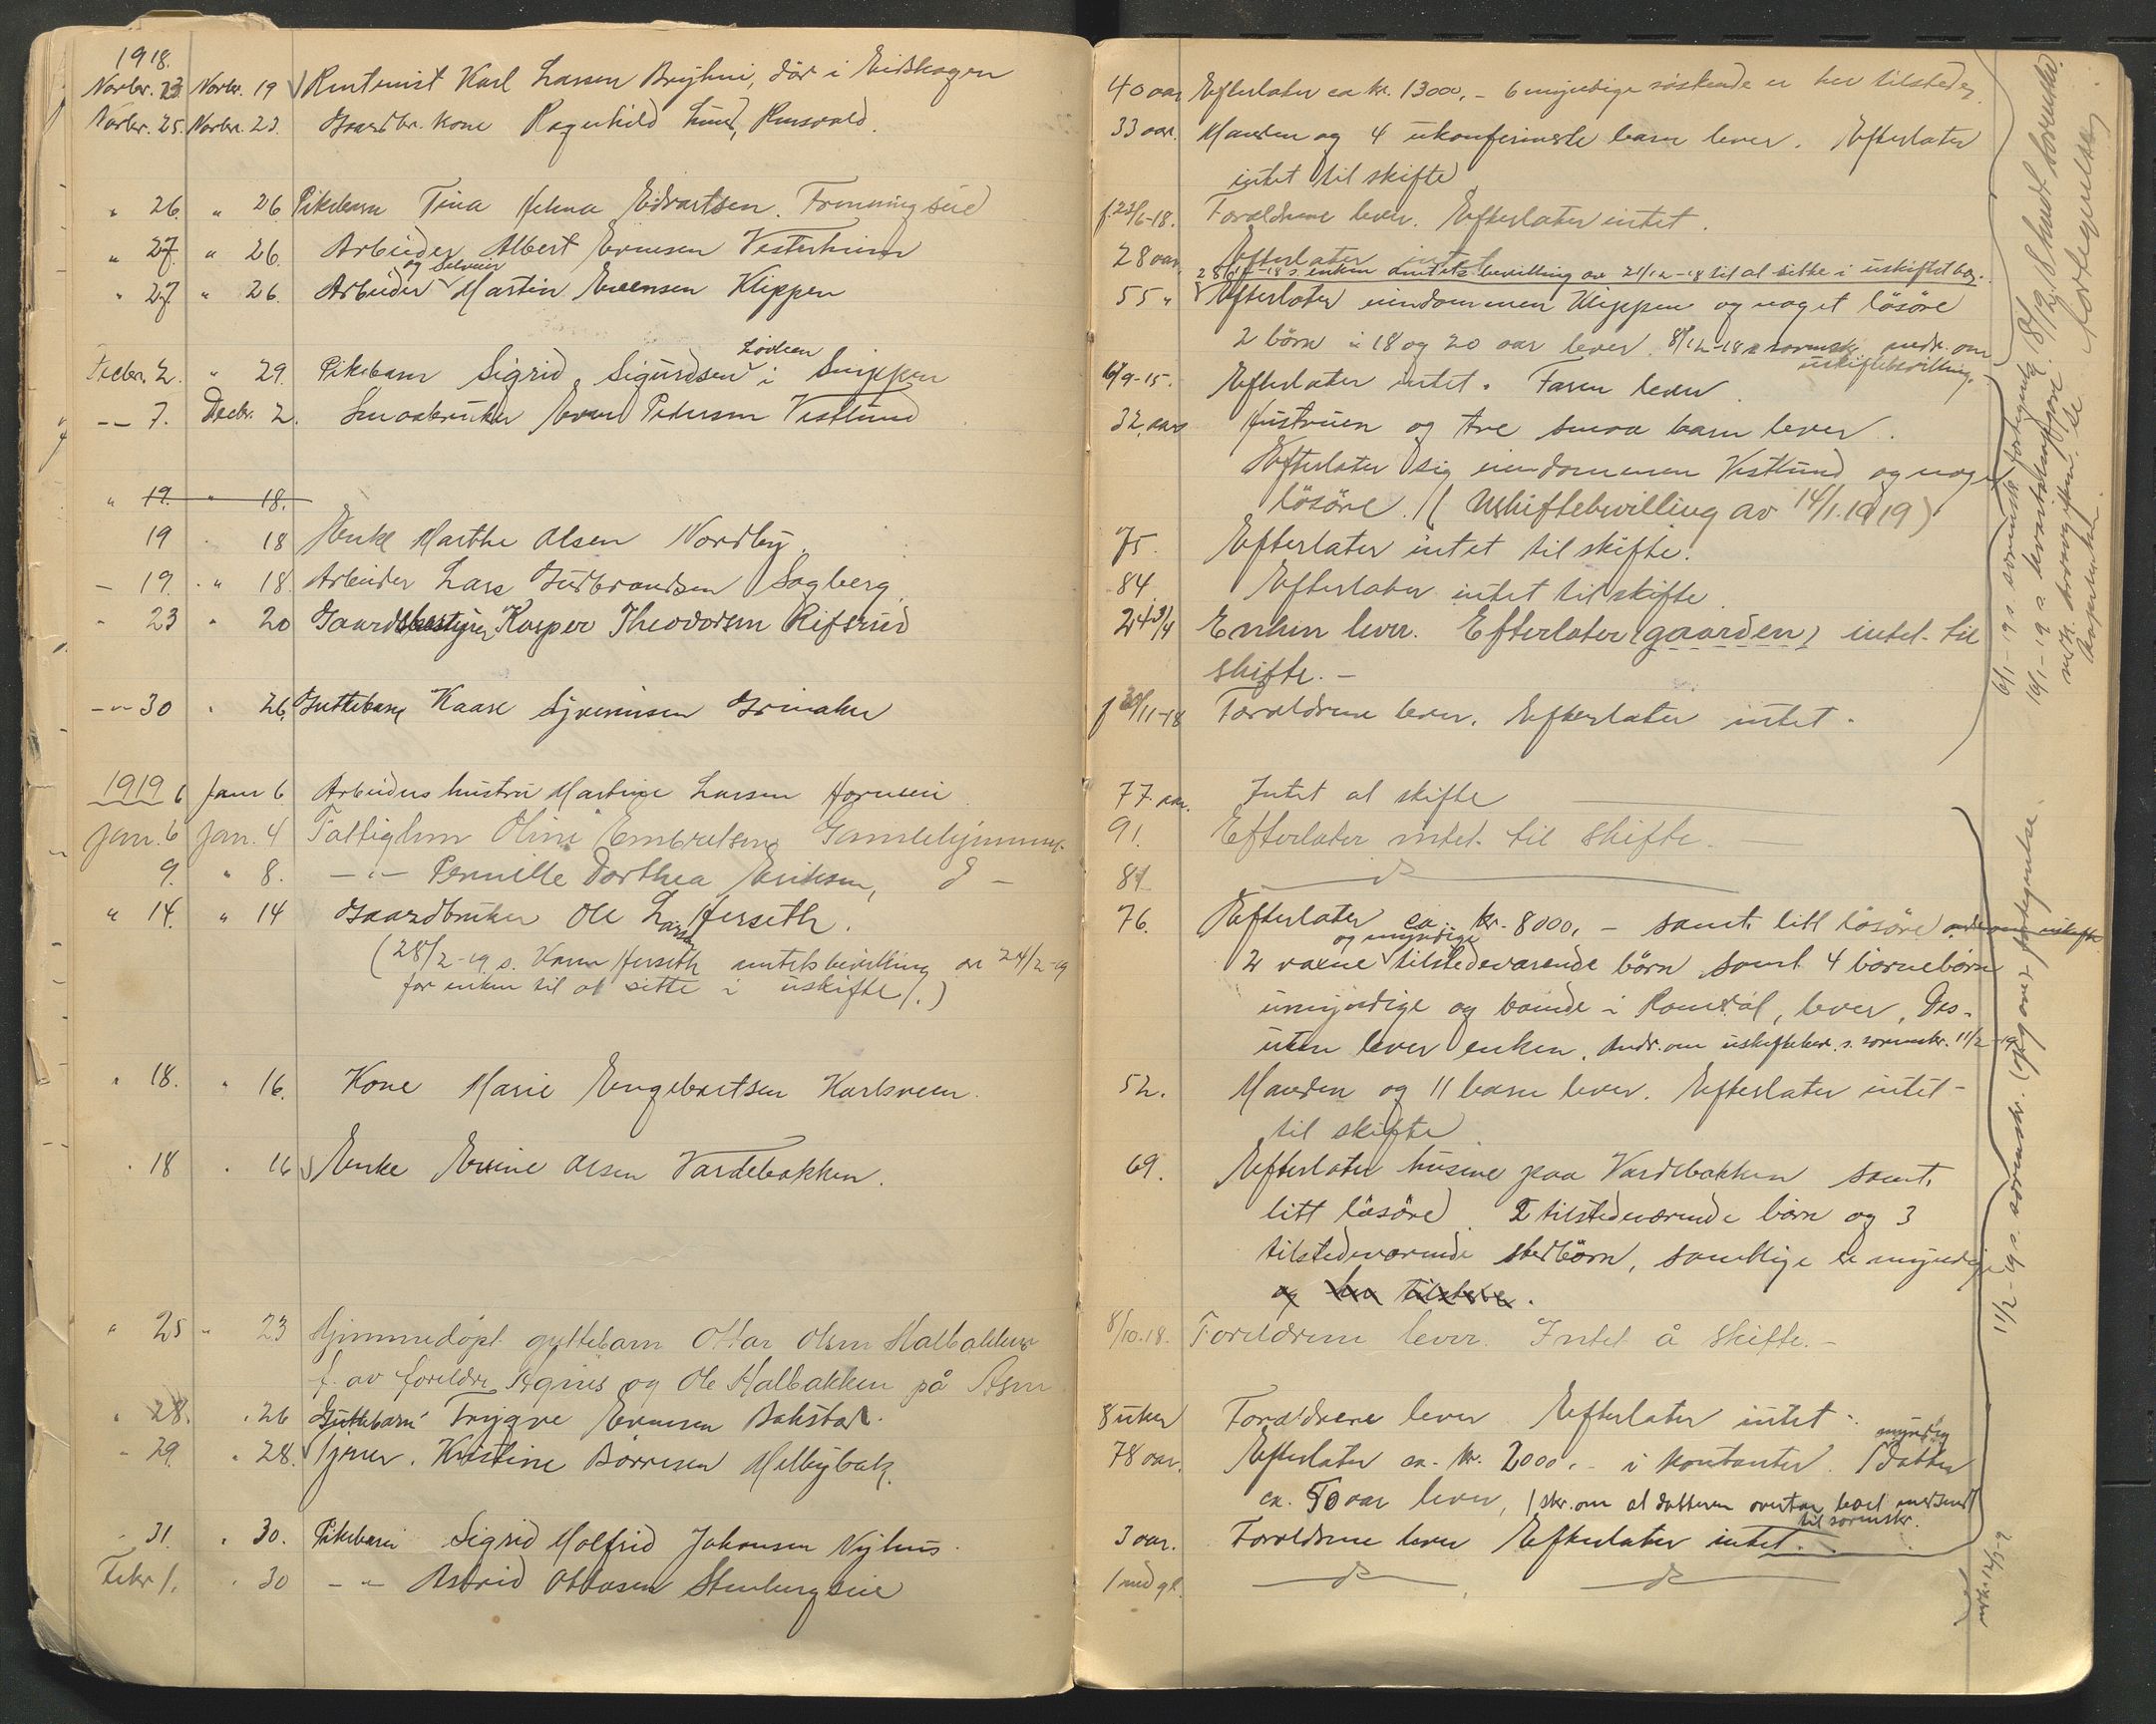 1918.
Novbr. 23. Novbr. 19 Rentenist Karl Larsen Bryhni, död i Eidskogen
Novbr. 25. Novbr. 23. Gaardbr. kone Ragnhild Lund,
" 26. " 26 Pikebarn Tina Helma Edvartsen.
" 27. " 26. Arbeider Albert Evensen
og Selveier
" 27. " 26. Arbeider Martin Evensen Klippen
Decbr. 2. " 29. Pikebarn Sigrid Sigurdsen i
-"- 7. Decbr. 2. Smaabruker Even Pedersen Vestlund
" 19. " 18.
19 " 18 Enke Marthe Olsen Nordby
- 19. " 18. Arbeider Lars Gudbrandsen Sagberg
" 23 " 20 Gaardbestyrer Kasper Theodorsen Rifsrud
-"- 30 " 26. Guttebarn Kaare
1919 6 Janr 6 Arbeiders hustru Martine Larsen
Jan. 6 Jan. 4 Fattiglem Oline Embretsen, Gamlehjemmet
9. " 8. -"- Pernille Dorthea Eriksen, d -
" 14. " 14 Gaardbruker Ole Larsen Herseth.
(28/2-19 s. Karen Herseth amtsbevilling av 24/2-19
for enken til at sitte i uskifte.)
" 18. " 16. Kone Marie Engebretsen Karlsveen.
" 18 " 16 Enke Evine Olsen Vardebakken.
" 25 " 23 Hjemmedöpt guttebarn Ottar Olsen Halbakken
f. av foreldre Agnes og Ole Halbakken på
" 28. " 26 Guttebarn Trygve Evensen Bakstad.
- 29. " 28. Kristine Börresen Melbybak.
" 31. " 30. Pikebarn Sigrid Malfrid Johansen Nyhus.
Febr 1. " 30 -"- Astrid Ottosen
40 aar Efterlater ca kr. 13000,- 6 myndige söskende er her tilstede.
33 aar. Manden og 4 ukonfirmerte barn lever. Efterlater
intet til skifte
f. 22/6-18. Foreldrene lever. Efterlater intet.
28 aar Efterlater intet
28/12-18 s. enken amtets bevilling av 21/12-18 til at sitte i uskiftet bo.
55 " Efterlater eiendommen Klippen og noget lösöre
2 börn i 18 og 20 aar lever. 8/12-18 s. sorenskr. andr. om
uskiftebevilling.
6/9-15. Efterlater intet. Faren lever.
32 aar Hustruen og tre smaa barn lever.
Efterlater sig eiendommen Vestlund og noget
lösöre. (Uskiftebevilling av 14/1.1919)
75. Efterlater intet til skifte.
84. Efterlater intet til skifte.
24 3/4 Enken lever. Efterlater (gaarden) intet til
skifte. -
f 30/11-18 Foreldrene lever. Efterlater intet.
77 aar. Intet at skifte
91. Efterlater intet til skifte.
84 d
76. Efterlater ca. kr. 8000,- samt litt lösöre
og myndige
2 vaxne tilstedevarende börn samt 4 börnebörn
umyndige og boende i Romsdal, lever. Des-
uten lever enken. Andr. om uskiftebev. s. sorenskr. 11/2-19
52. Manden og 11 barn lever. Efterlater intet
til skifte
69. Efterlater husene paa Vardebakken samt
litt lösöre. 2 tilstedeværende börn og 3
tilstedeværende stedbörn, samtlige er myndige
og her tilstede.
8/10.18. Foreldrene lever. Intet å skifte. -
8 uker Foreldrene lever Efterlater intet
myndig
78 aar. Efterlater ca. kr. 2000,- i kontanter. 1 datter
ca. 50 aar lever, 1 skr. om at datteren overtar boet
til sorenskr.
3 aar. Foreldrene lever Efterlater intet.
1 md gl. d d